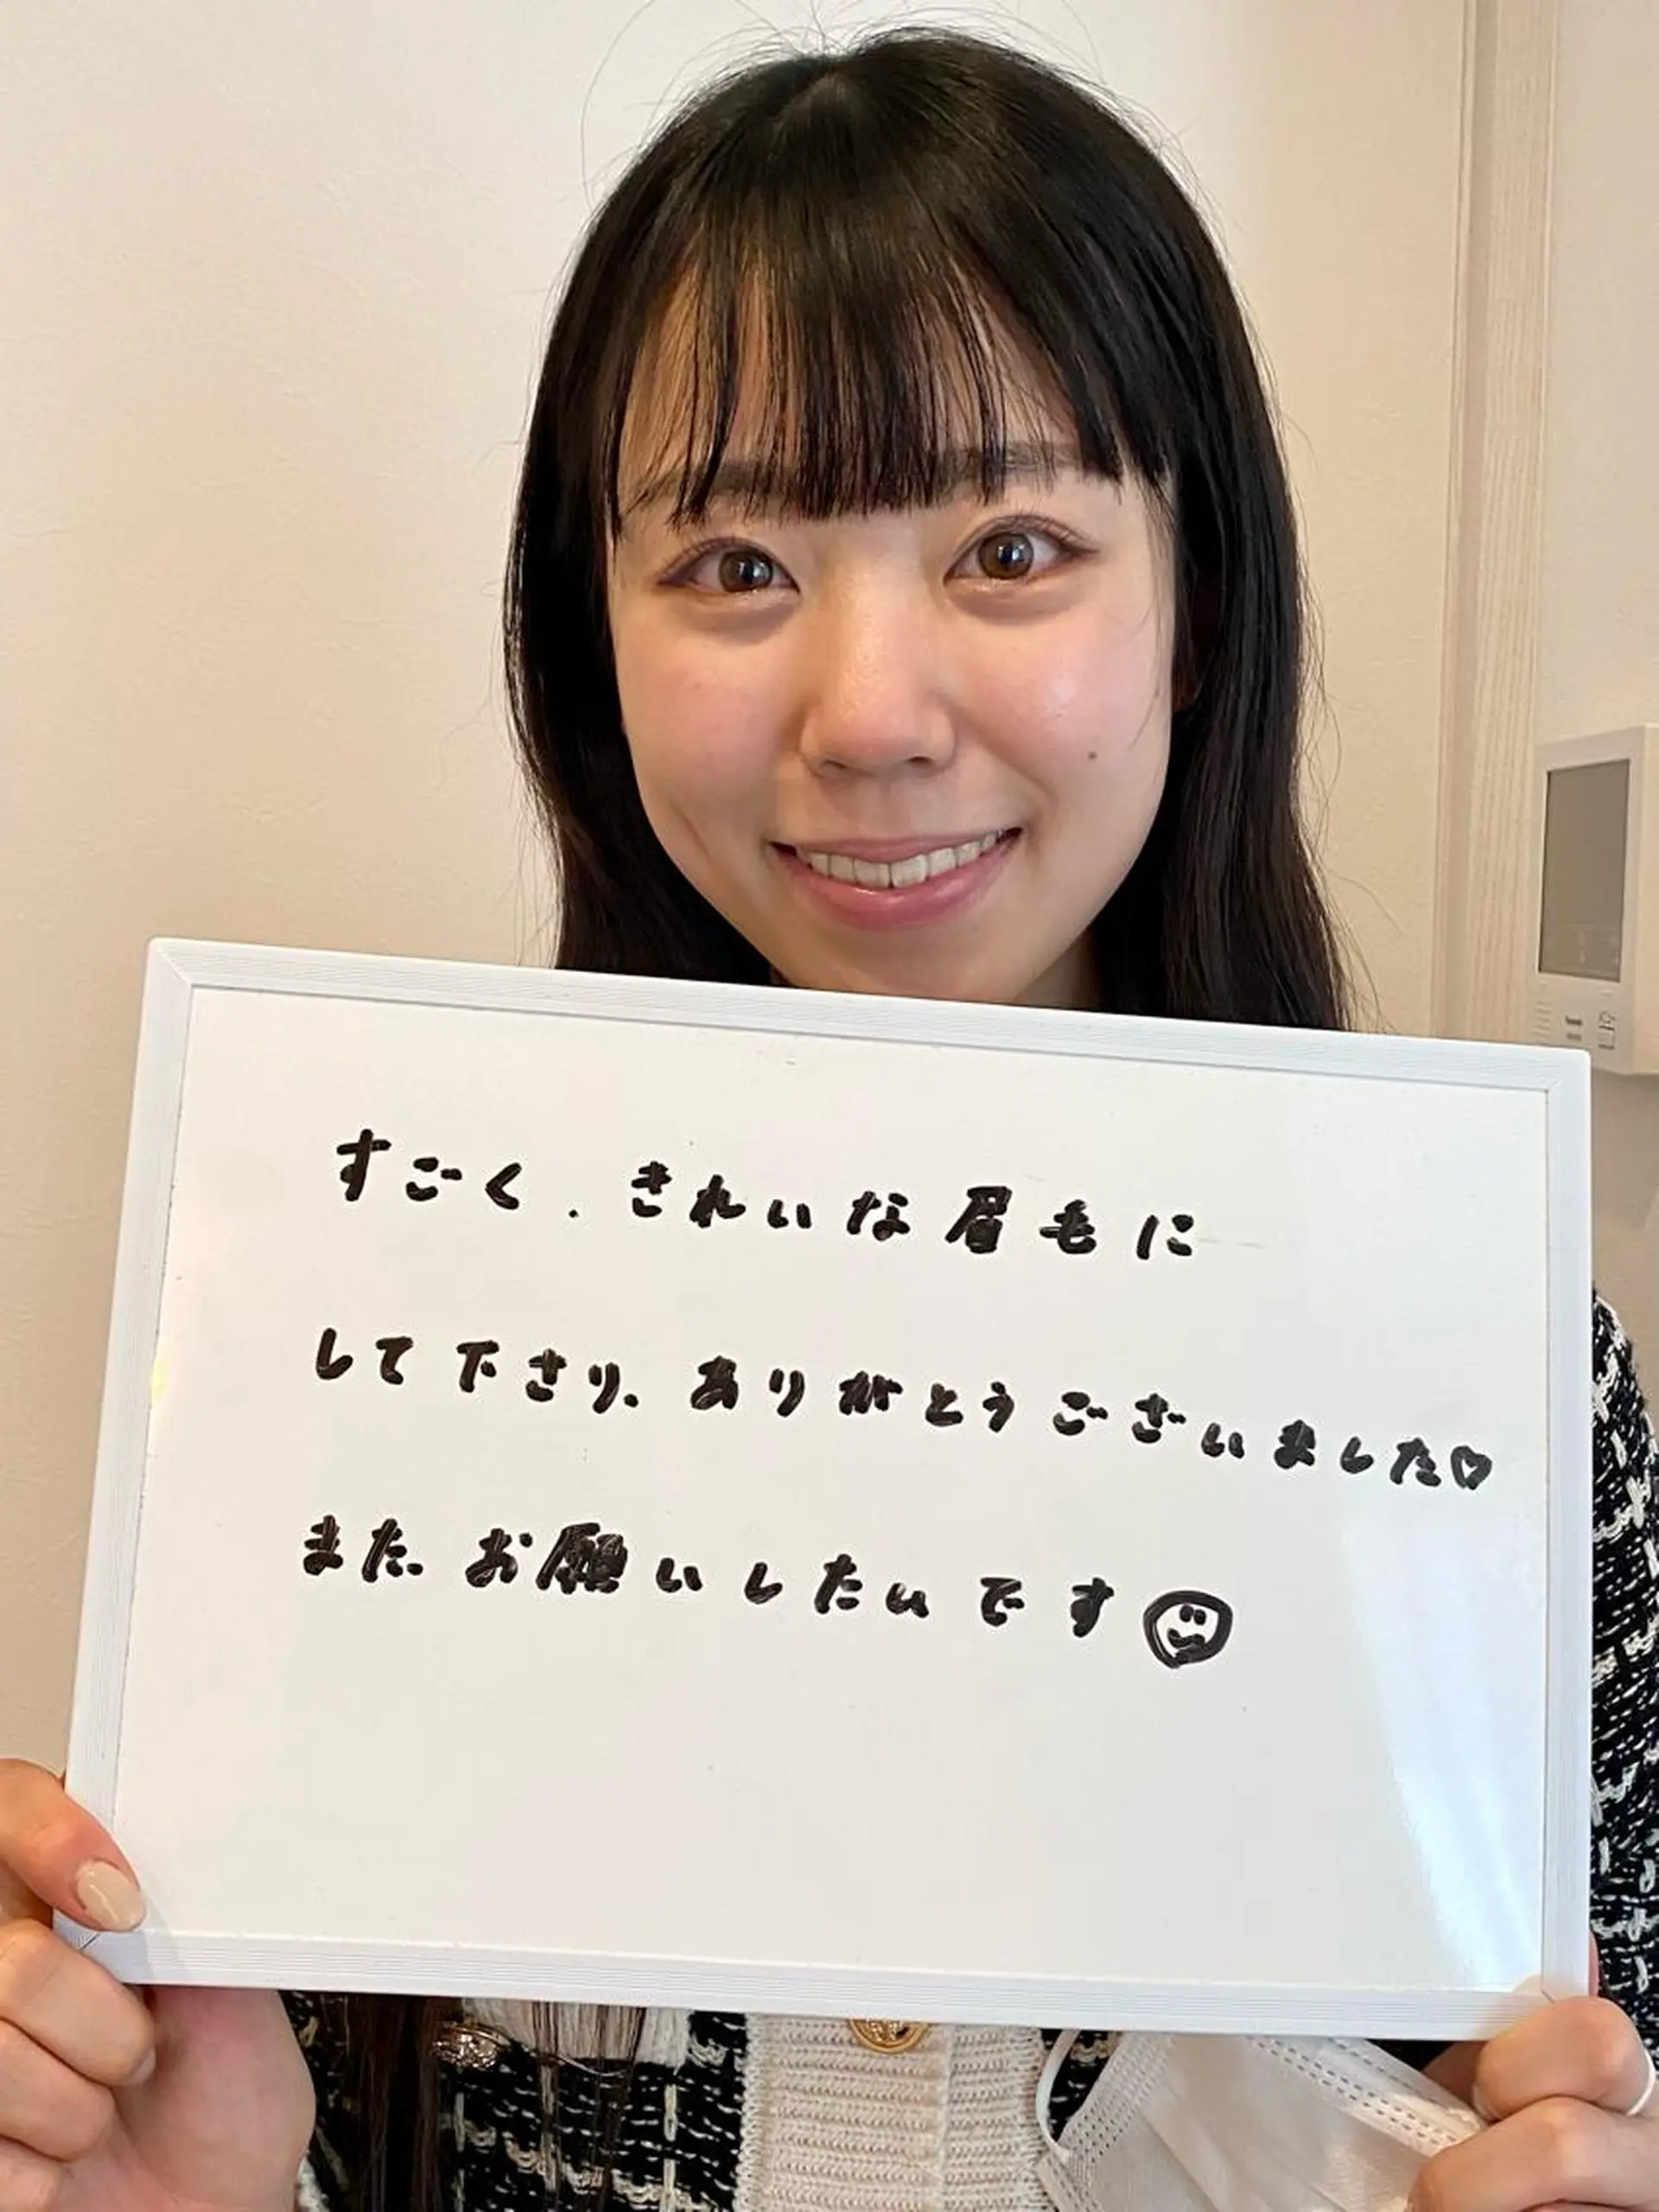 すごく、きれいな眉毛に
して下さり、ありがとうございました♡
また、お願いしたいです☺